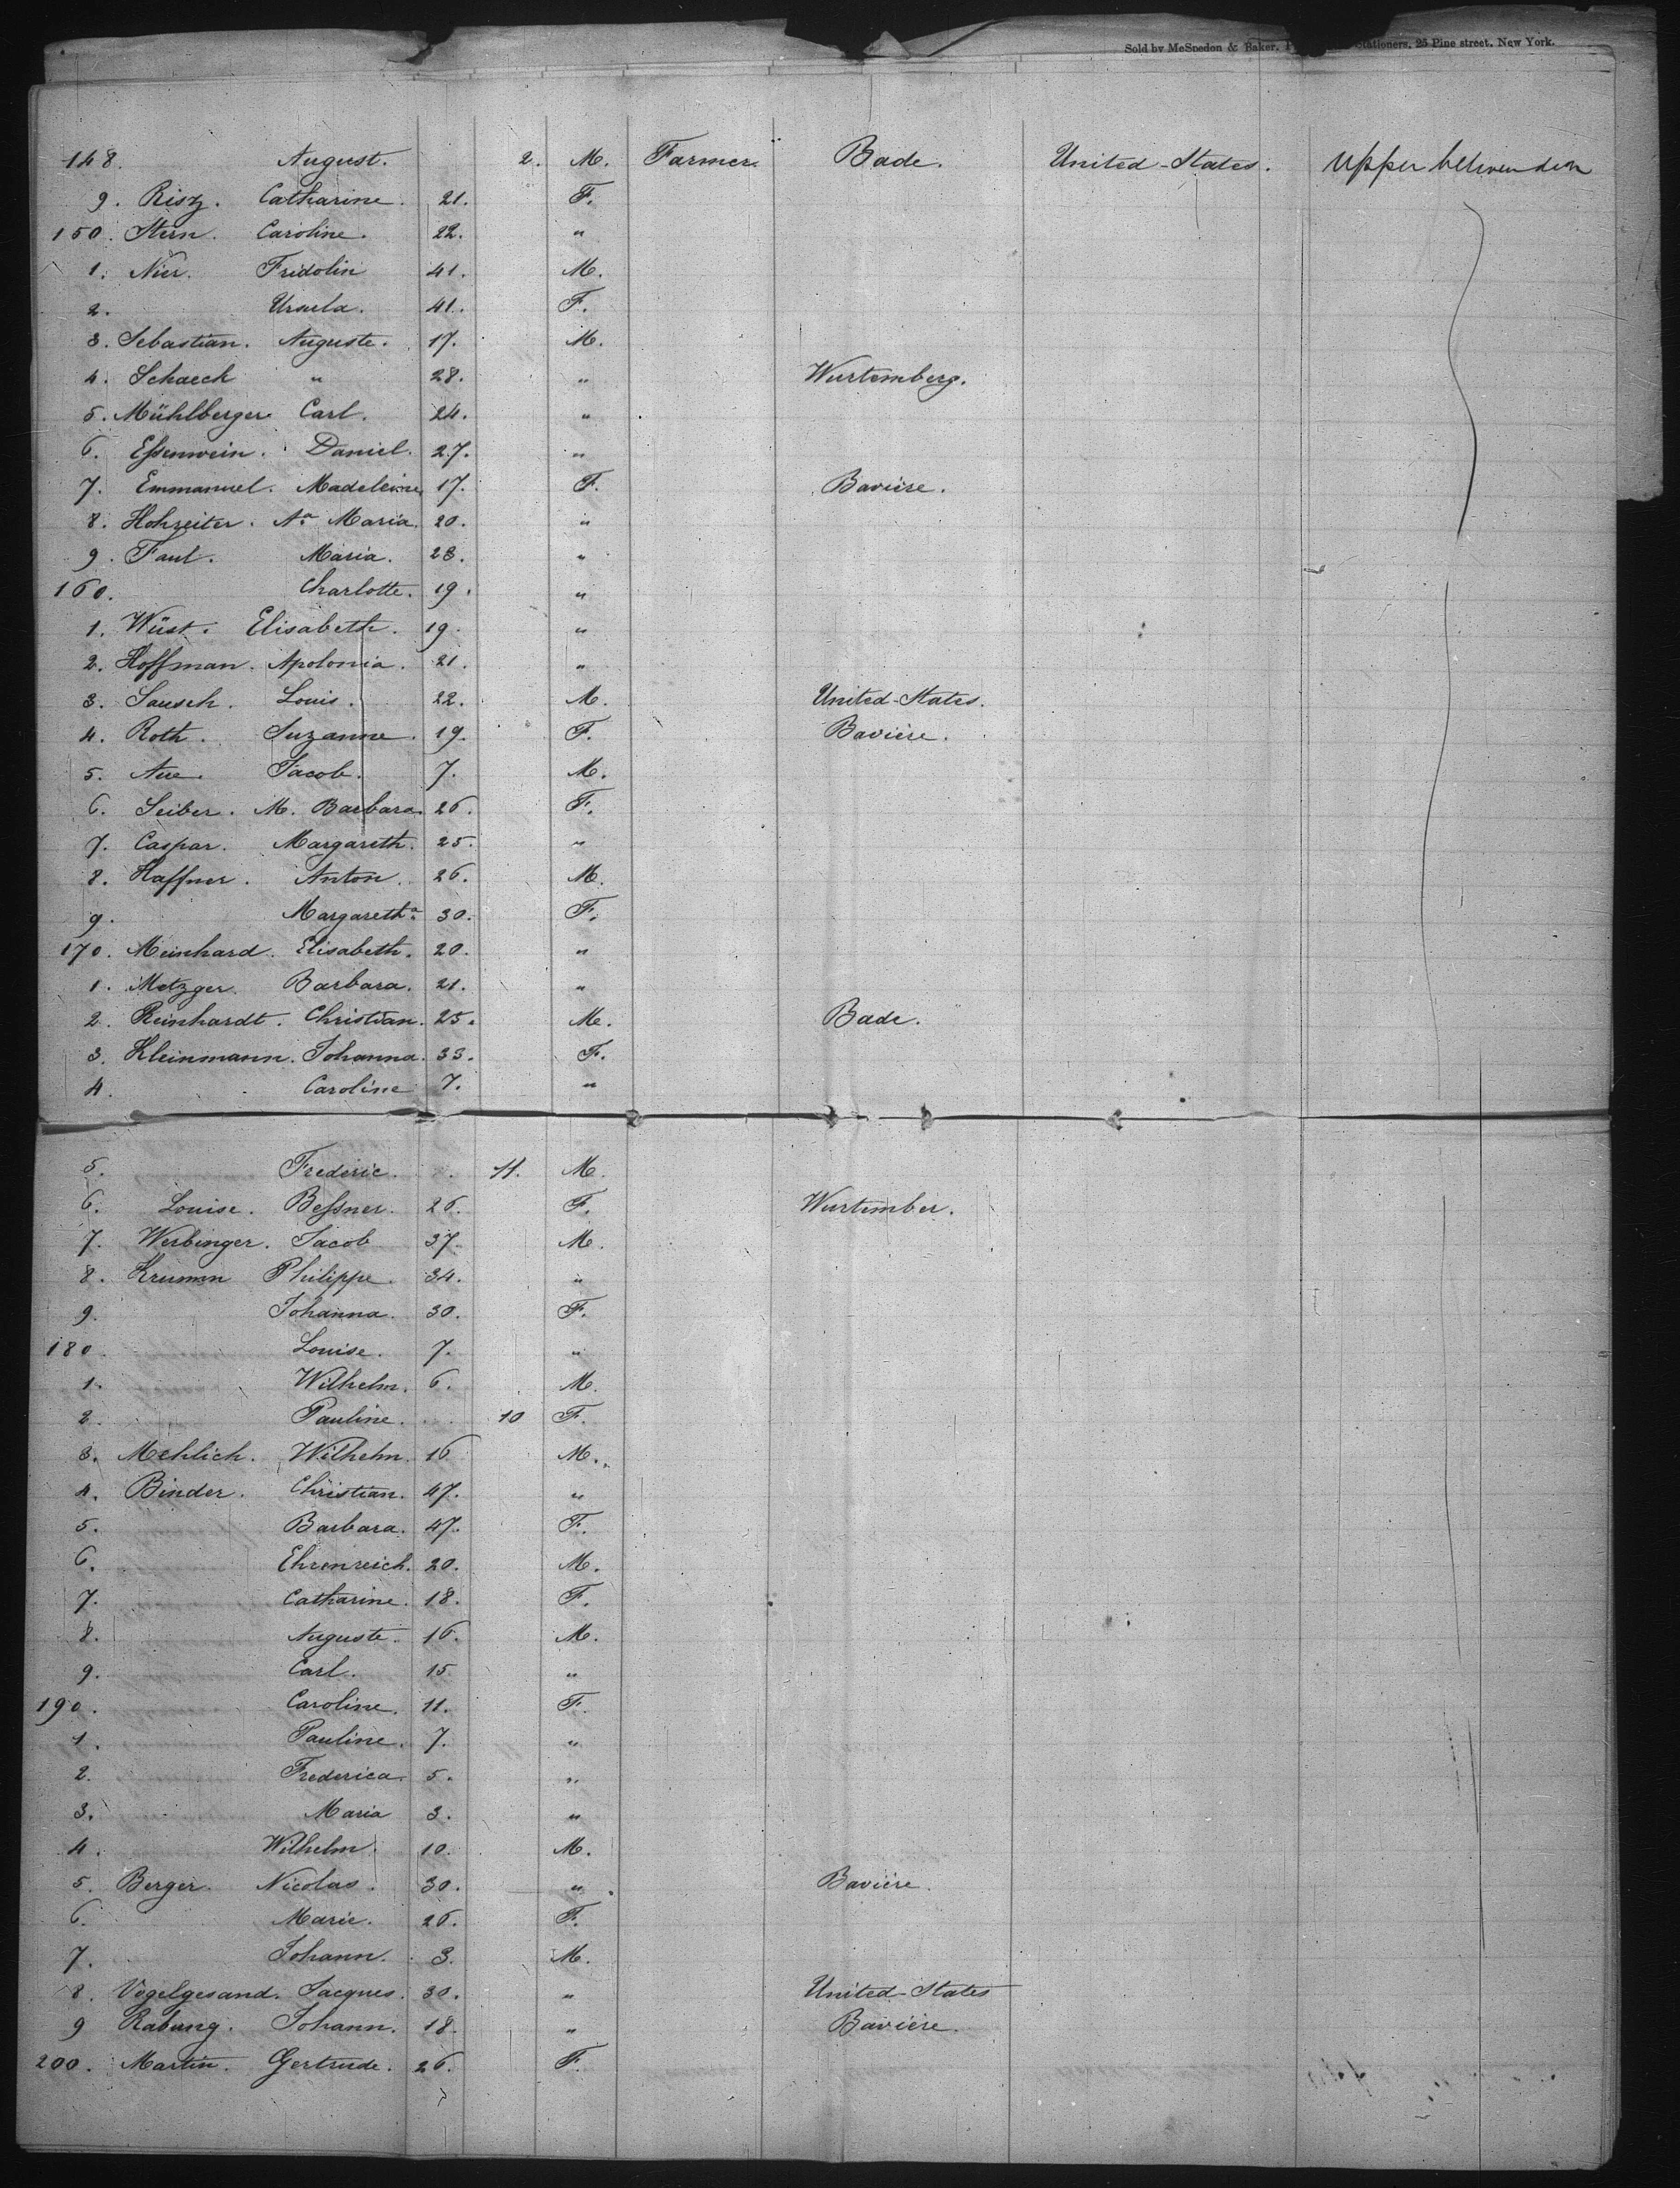 Sold by McSpedon & Baker, Stationers, 25 Pine street, New York.
148. August. 2. M. Farmer. Bade. United-States. Upper between den
9. Risz. Catharine. 21. F.
150. Stern. Caroline. 22. "
1. Nier. Fridolin 41. M.
2. Ursula. 41. F.
3. Sebastian. Auguste. 17. M.
4. Schaeck " 28. " Wurtemberg.
5. Mühlberger Carl. 24. "
6. Eßenwein. Daniel. 27. "
7. Emmanuel. Madeleine 17. F. Bavière.
8. Hohreiter. Aa Maria. 20. "
9. Faul. Maria. 23. "
160. Charlotte. 19. "
1. Wüst. Elisabeth. 19. "
2. Hoffman. Apolonia. 21. "
3. Sausch. Louis. 22. M. United-States.
4. Roth. Suzanne. 19. F. Bavière.
5. Aue. Jacob. 7. M.
6. Seiber. M. Barbara. 26. F.
7. Caspar. Margareth. 25. "
8. Haffner. Anton. 26. M.
9. Margaretha 30. F.
170. Meinhard. Elisabeth. 20. "
1. Metzger. Barbara. 21. "
2. Reinhardt. Christian. 25. M. Bade.
3. Kleinmann. Johanna. 33. F.
4. Caroline 7. "
5. Frederic. 11. M.
6. Louise. Beßner. 26. F. Wurtember.
7. Werbinger. Jacob 37. M.
8. Krumm Philippe. 34. "
9. Johanna. 30. F.
180. Louise. 7. "
1. Wilhelm. 6. M.
2. Pauline. 10 F.
3. Mehlich. Wilhelm. 16 M.
4. Binder. Christian. 47. "
5. Barbara. 47. F.
6. Ehrenreich. 20. M.
7. Catharine. 18. F.
8. Auguste. 16. M.
9. Carl. 15 "
190. Caroline. 11. F.
1. Pauline. 7. "
2. Frederica. 5. "
3. Maria 3. "
4. Wilhelm. 10. M.
5. Berger. Nicolas. 30. " Bavière.
6. Marie. 26. F.
7. Johann. 3. M.
8. Vogelgesand. Jacques. 30. " United-States
9 Rabung. Johann. 18. " Bavière.
200. Martin. Gertrude. 26. F.